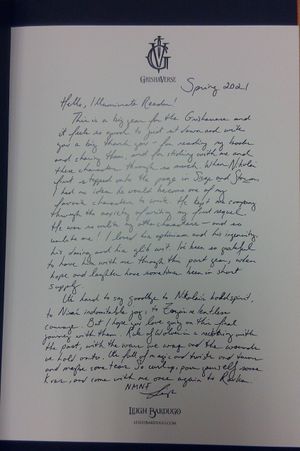 GRISHAVERSE
Spring 2021
Hello, Illuminate Reader!
This is a big year for the Grishaverse and
it feels so good to just sit down and write
you a big thank you - for reading my books
and sharing them, and for sticking with me and
these characters through so much. When Nikolai
first stepped onto the page in Siege and Storm
I had no idea he would become one of my
favorite characters to write. He kept me company
through the anxiety of writing my first sequel.
He was so unlike my other characters - and so
unlike me! I loved his optimism and his ingenuity,
his daring and his glib wit. I've been so grateful
to have him with me through this past year, when
hope and laughter have sometimes been in short
supply.
It's hard to say goodbye to Nikolai's bold spirit,
to Nina's indomitable joy, to Zoya's relentless
courage. But I hope you love going on this final
journey with them. Rule of Wolves is a reckoning with
the past, with the wars we wage and the wounds
we hold onto. It's full of magic and twists and turns
and maybe some tears. So curl up, pour yourself some
kvas, and come with me once again to Ravka.
NMNF
LEIGH BARDUGO
LEIGHBARDUGO.COM